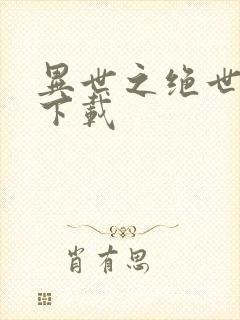 異世之绝世
下載
肖有思